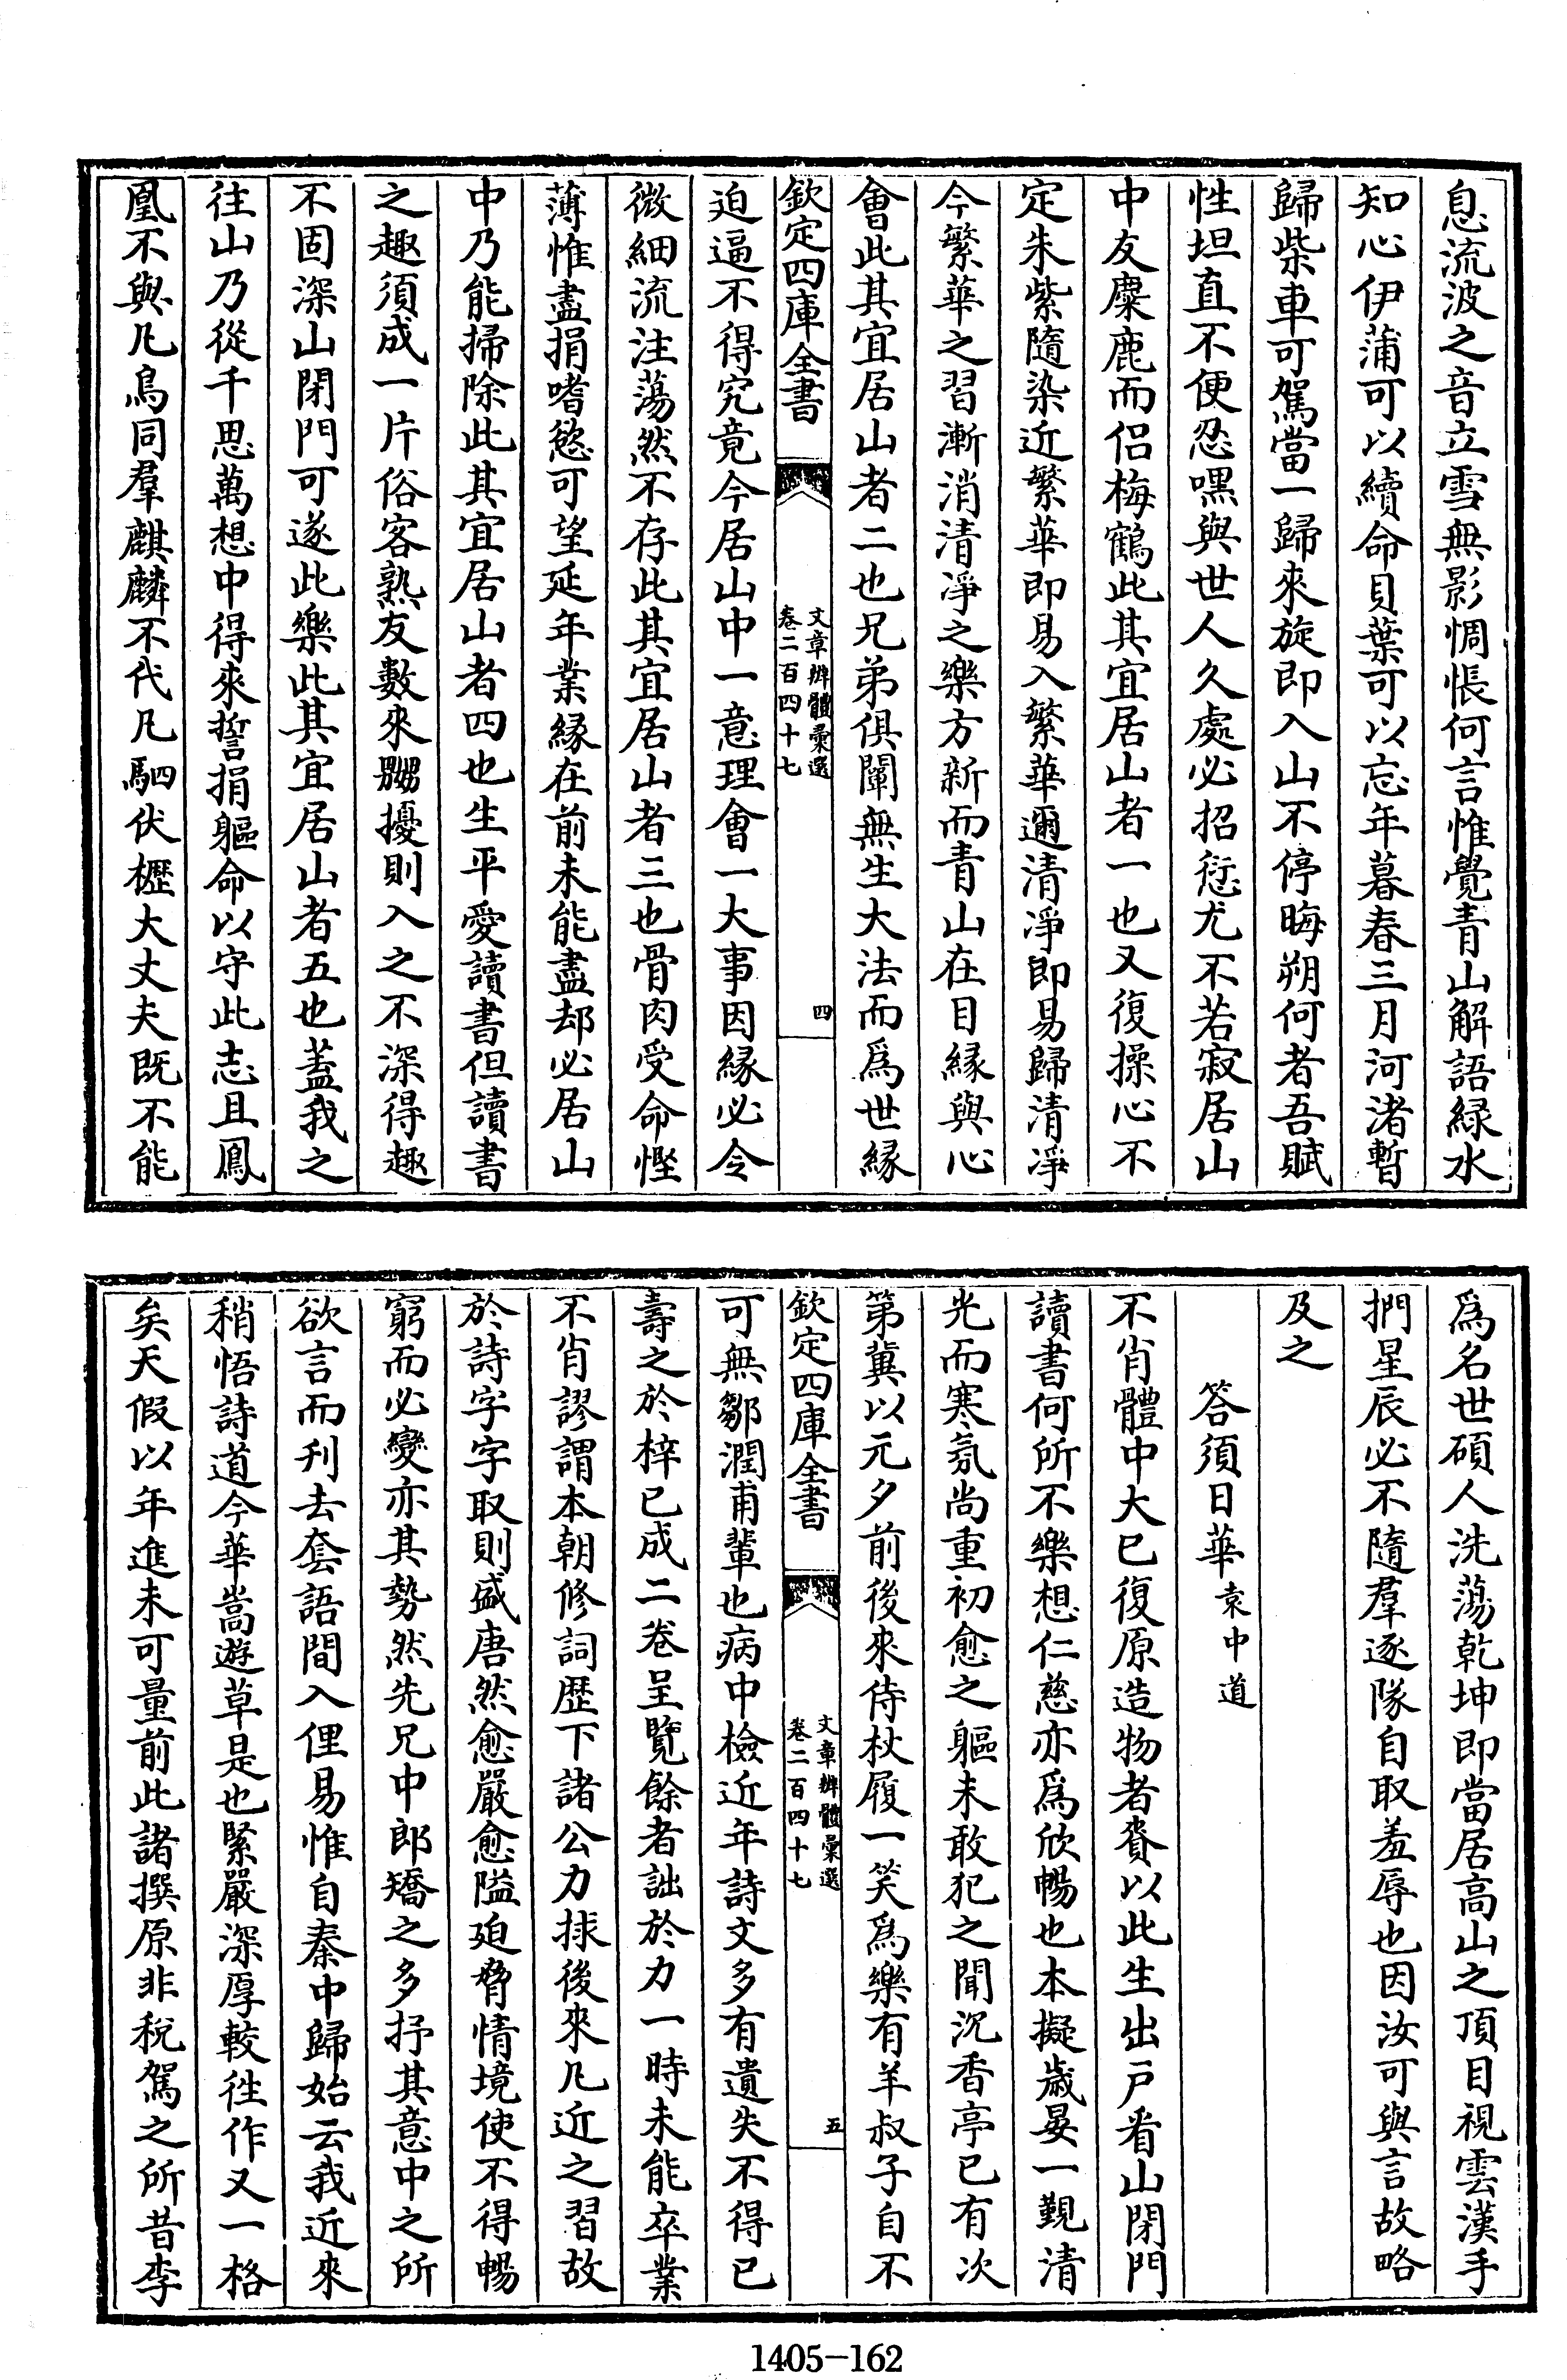 息流波之音立雪無影惆悵何言惟覺青山解語緑水
知心伊蒲可以續命貝葉可以忘年暮春三月河渚暫
歸柴車可駕當一歸來旋即入山不停晦朔何者吾賦
性坦直不便忍嘿與世人久處必招愆尤不若寂居山
中友麋鹿而侶梅鶴此其宜居山者一也又復操心不
定朱紫隨染近繁華即易入繁華邇清凈即易歸清凈
今繁華之習漸消清凈之樂方新而青山在目緣與心
會此其宜居山者二也兄弟俱闡無生大法而爲世緣
欽定四庫全書
文章辨體彙選
卷二百四十七
四
迫逼不得究竟今居山中一意理會一大事因緣必令
微細流注蕩然不存此其宜居山者三也骨肉受命慳
薄惟盡捐嗜慾可望延年業緣在前未能盡却必居山
中乃能掃除此其宜居山者四也生平愛讀書但讀書
之趣須成一片俗客熟友數來嬲擾則入之不深得趣
不固深山閉門可遂此樂此其宜居山者五也蓋我之
往山乃從千思萬想中得來誓捐軀命以守此志且鳳
凰不與凡鳥同羣麒麟不代凡駟伏櫪大丈夫既不能
爲名世碩人洗蕩乾坤即當居高山之頂目視雲漢手
捫星辰必不隨羣逐隊自取羞辱也因汝可與言故略
及之
答須日華袁中道
不肖體中大已復原造物者賚以此生出戸看山閉門
讀書何所不樂想仁慈亦爲欣暢也本擬歲晏一覲清
光而寒氛尚重初愈之軀未敢犯之聞沉香亭已有次
第冀以元夕前後來侍杖履一笑爲樂有羊叔子自不
欽定四庫全書
文章辨體彙選
卷二百四十七
五
可無鄒潤甫輩也病中檢近年詩文多有遺失不得已
壽之於梓已成二卷呈覽餘者詘於力一時未能卒業
不肖謬謂本朝修詞歴下諸公力捄後來凡近之習故
於詩字字取則盛唐然愈嚴愈隘廹脅情境使不得暢
窮而必變亦其勢然先兄中郎矯之多抒其意中之所
欲言而刋去套語間入俚易惟自秦中歸始云我近來
稍悟詩道今華嵩遊草是也緊嚴深厚較徃作又一格
矣天假以年進未可量前此諸撰原非税駕之所昔李
1405-162